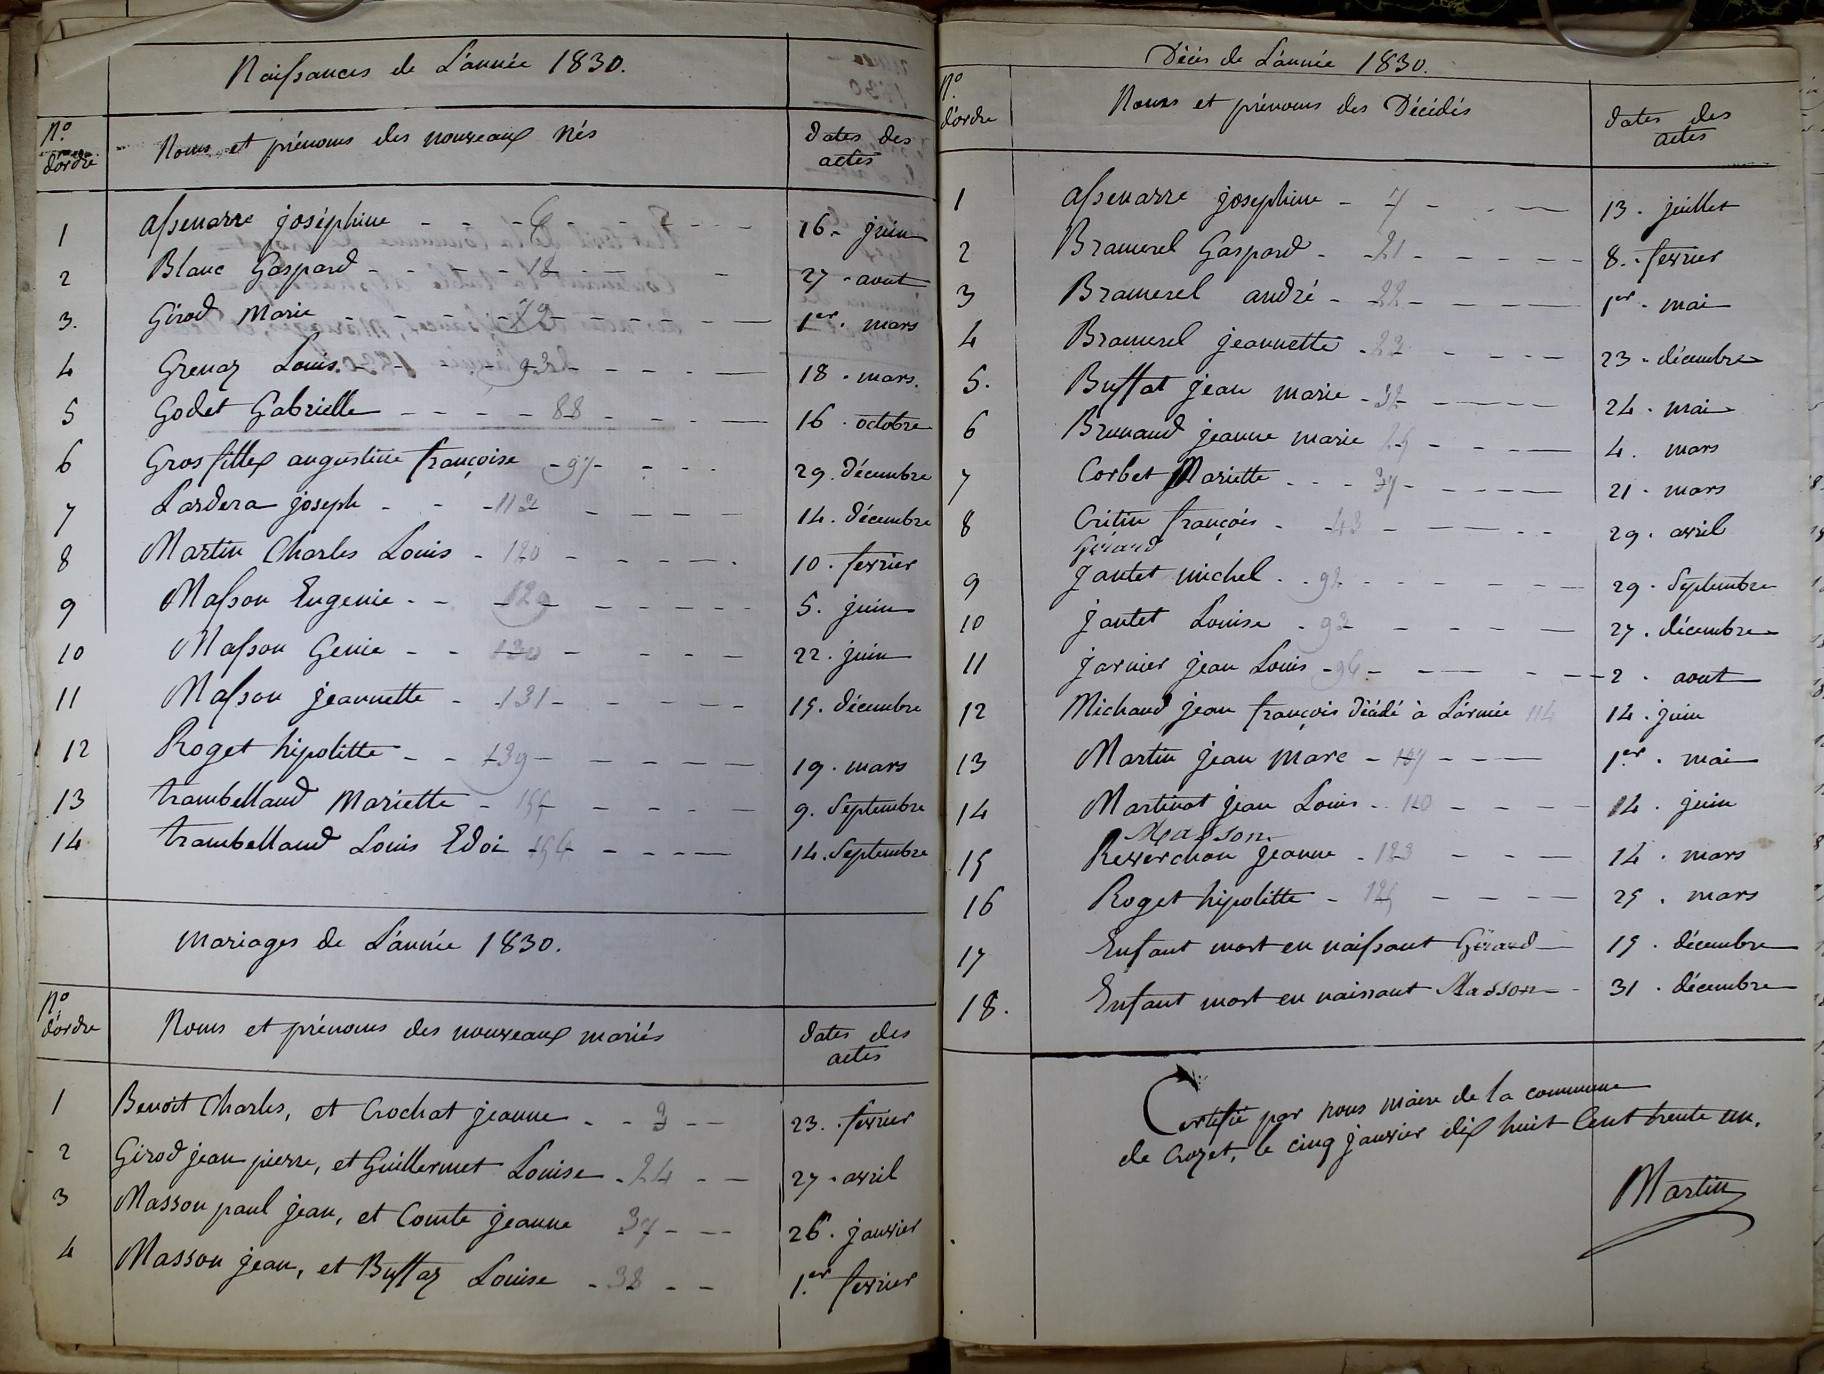 Naissances de L'année 1830.
N.o d'ordre Noms et prénoms des nouveaux Nés dates des actes
1 assenarre joséphine - - 6 - - 16. juin
2 Blanc Gaspard - - - 18 - - 27. aout
3. Girod Marie - - 79 - - 1er. mars
4 Grenaz Louis - - 93 - - 18. mars.
5 Godet Gabrielle - - - 88 - - 16. octobre
6 Grosfillex augustine françoise - 97 - - 29. décembre
7 Lardera joseph - - 112 - - 14. décembre
8 Martin Charles Louis - 120 - - 10. fevrier
9 Masson Eugenie - - 129 - - 5. juin
10 Masson Genie - - 130 - - 22. juin
11 Masson jeannette - 131 - - 15. décembre
12 Roget hipolitte - - 139 - - 19. mars
13 trambelland Mariette - 155 - - 9. Septembre
14 trambelland Louis Edoi 156 - - 14. Septembre
mariages de L'année 1830.
N.o d'ordre Noms et prénoms des nouveaux mariés dates des actes
1 Benoit Charles, et Crochat jeanne - - 3 - - 23. fevrier
2 Girod jean pierre, et Guillermet Louise - 24 - - 27. avril
3 Masson paul jean, et Comte jeanne 37 - - 26. janvier
4 Masson jean, et Buffaz Louise - 38 - - 1.er fevrier
Décès de L'année 1830.
N.o d'ordre Noms et prénoms des Décédés dates des actes
1 assenarre josephine - 7 - - 13. juillet
2 Bramerel Gaspard - 21 - - 8. fevrier
3 Bramerel andré - 22 - - 1er. mai
4 Bramerel jeannette - 23 - - 23. décembre
5. Buffat jean marie - 32 - - 24. mai
6 Brunand jeanne marie 25 - - 4. mars
7 Corbet Mariette - - - 37 - - 21. mars
8 Critin françois - 43 - - 29. avril
Gérard
9 jantet michel - 92 - - 29. Septembre
10 jantet Louise - 93 - - 27. décembre
11 jarnier jean Louis - 96 - - 2. aout
12 Michaud jean françois Décédé à L'armée 114 14. juin
13 Martin jean marc - 107 - - 1er. mai
14 Martinat jean Louis - 110 - - 14. juin
Masson
15 Reverchon jeanne - 123 - - 14. mars
16 Roget hipolitte - 125 - - 25. mars
17 Enfant mort en naissant Gérard 15. décembre
18. Enfant mort en naissant Masson 31. décembre
Certifié par nous maire de la commune
de Crozet, le cinq janvier dix huit Cent trente un.
Martin